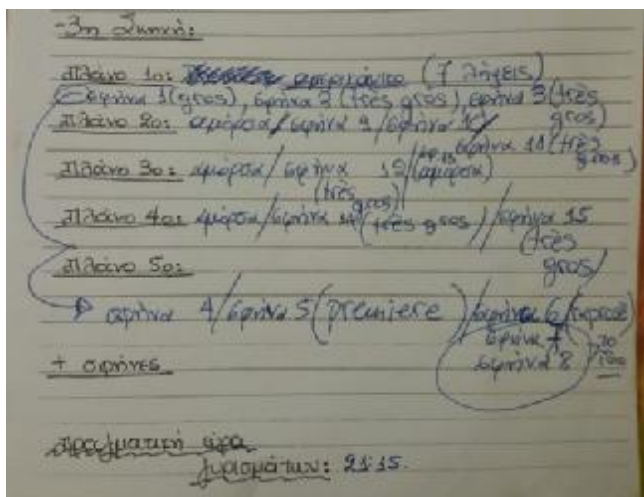 -3η Σκηνή:
Πλάνο 1ο: αμερικάνικο (7 λήψεις)
σφήνα 1(gros), σφήνα 2 (très gros), σφήνα 3 (très gros)
Πλάνο 2ο: αμόρσα/σφήνα 9/σφήνα 10/
σφήνα 11 (très gros)
Πλάνο 3ο: αμόρσα/σφήνα 12 (très gros)/σφ.13 (αμόρσα)
Πλάνο 4ο: αμόρσα/σφήνα 14 (très gros)/σφήνα 15 (très gros)/
Πλάνο 5ο:
σφήνα 4/σφήνα 5 (premiere)/σφήνα 6
σφήνα 7
σφήνα 8
+ σφήνες
πραγματική ώρα
γυρισμάτων: 21:15.